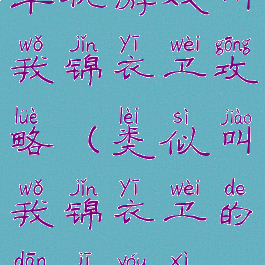 wǒ jǐn yī wèi gōng
我锦衣卫攻
lüè lèi sì jiào
略（类似叫
wǒ jǐn yī wèi de
我锦衣卫的
dān jī yóu xì